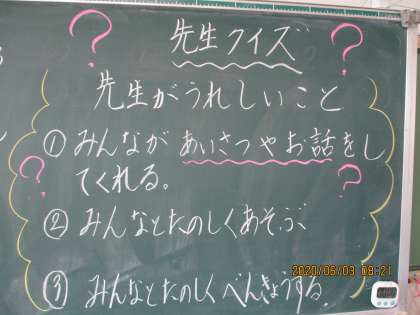 ? 先生クイズ ?
先生がうれしいこと
① みんなが あいさつやお話をし
てくれる。
? ?
② みんなとたのしくあそぶ、
③ みんなとたのしくべんきょうする。
2020/06/03 08:21